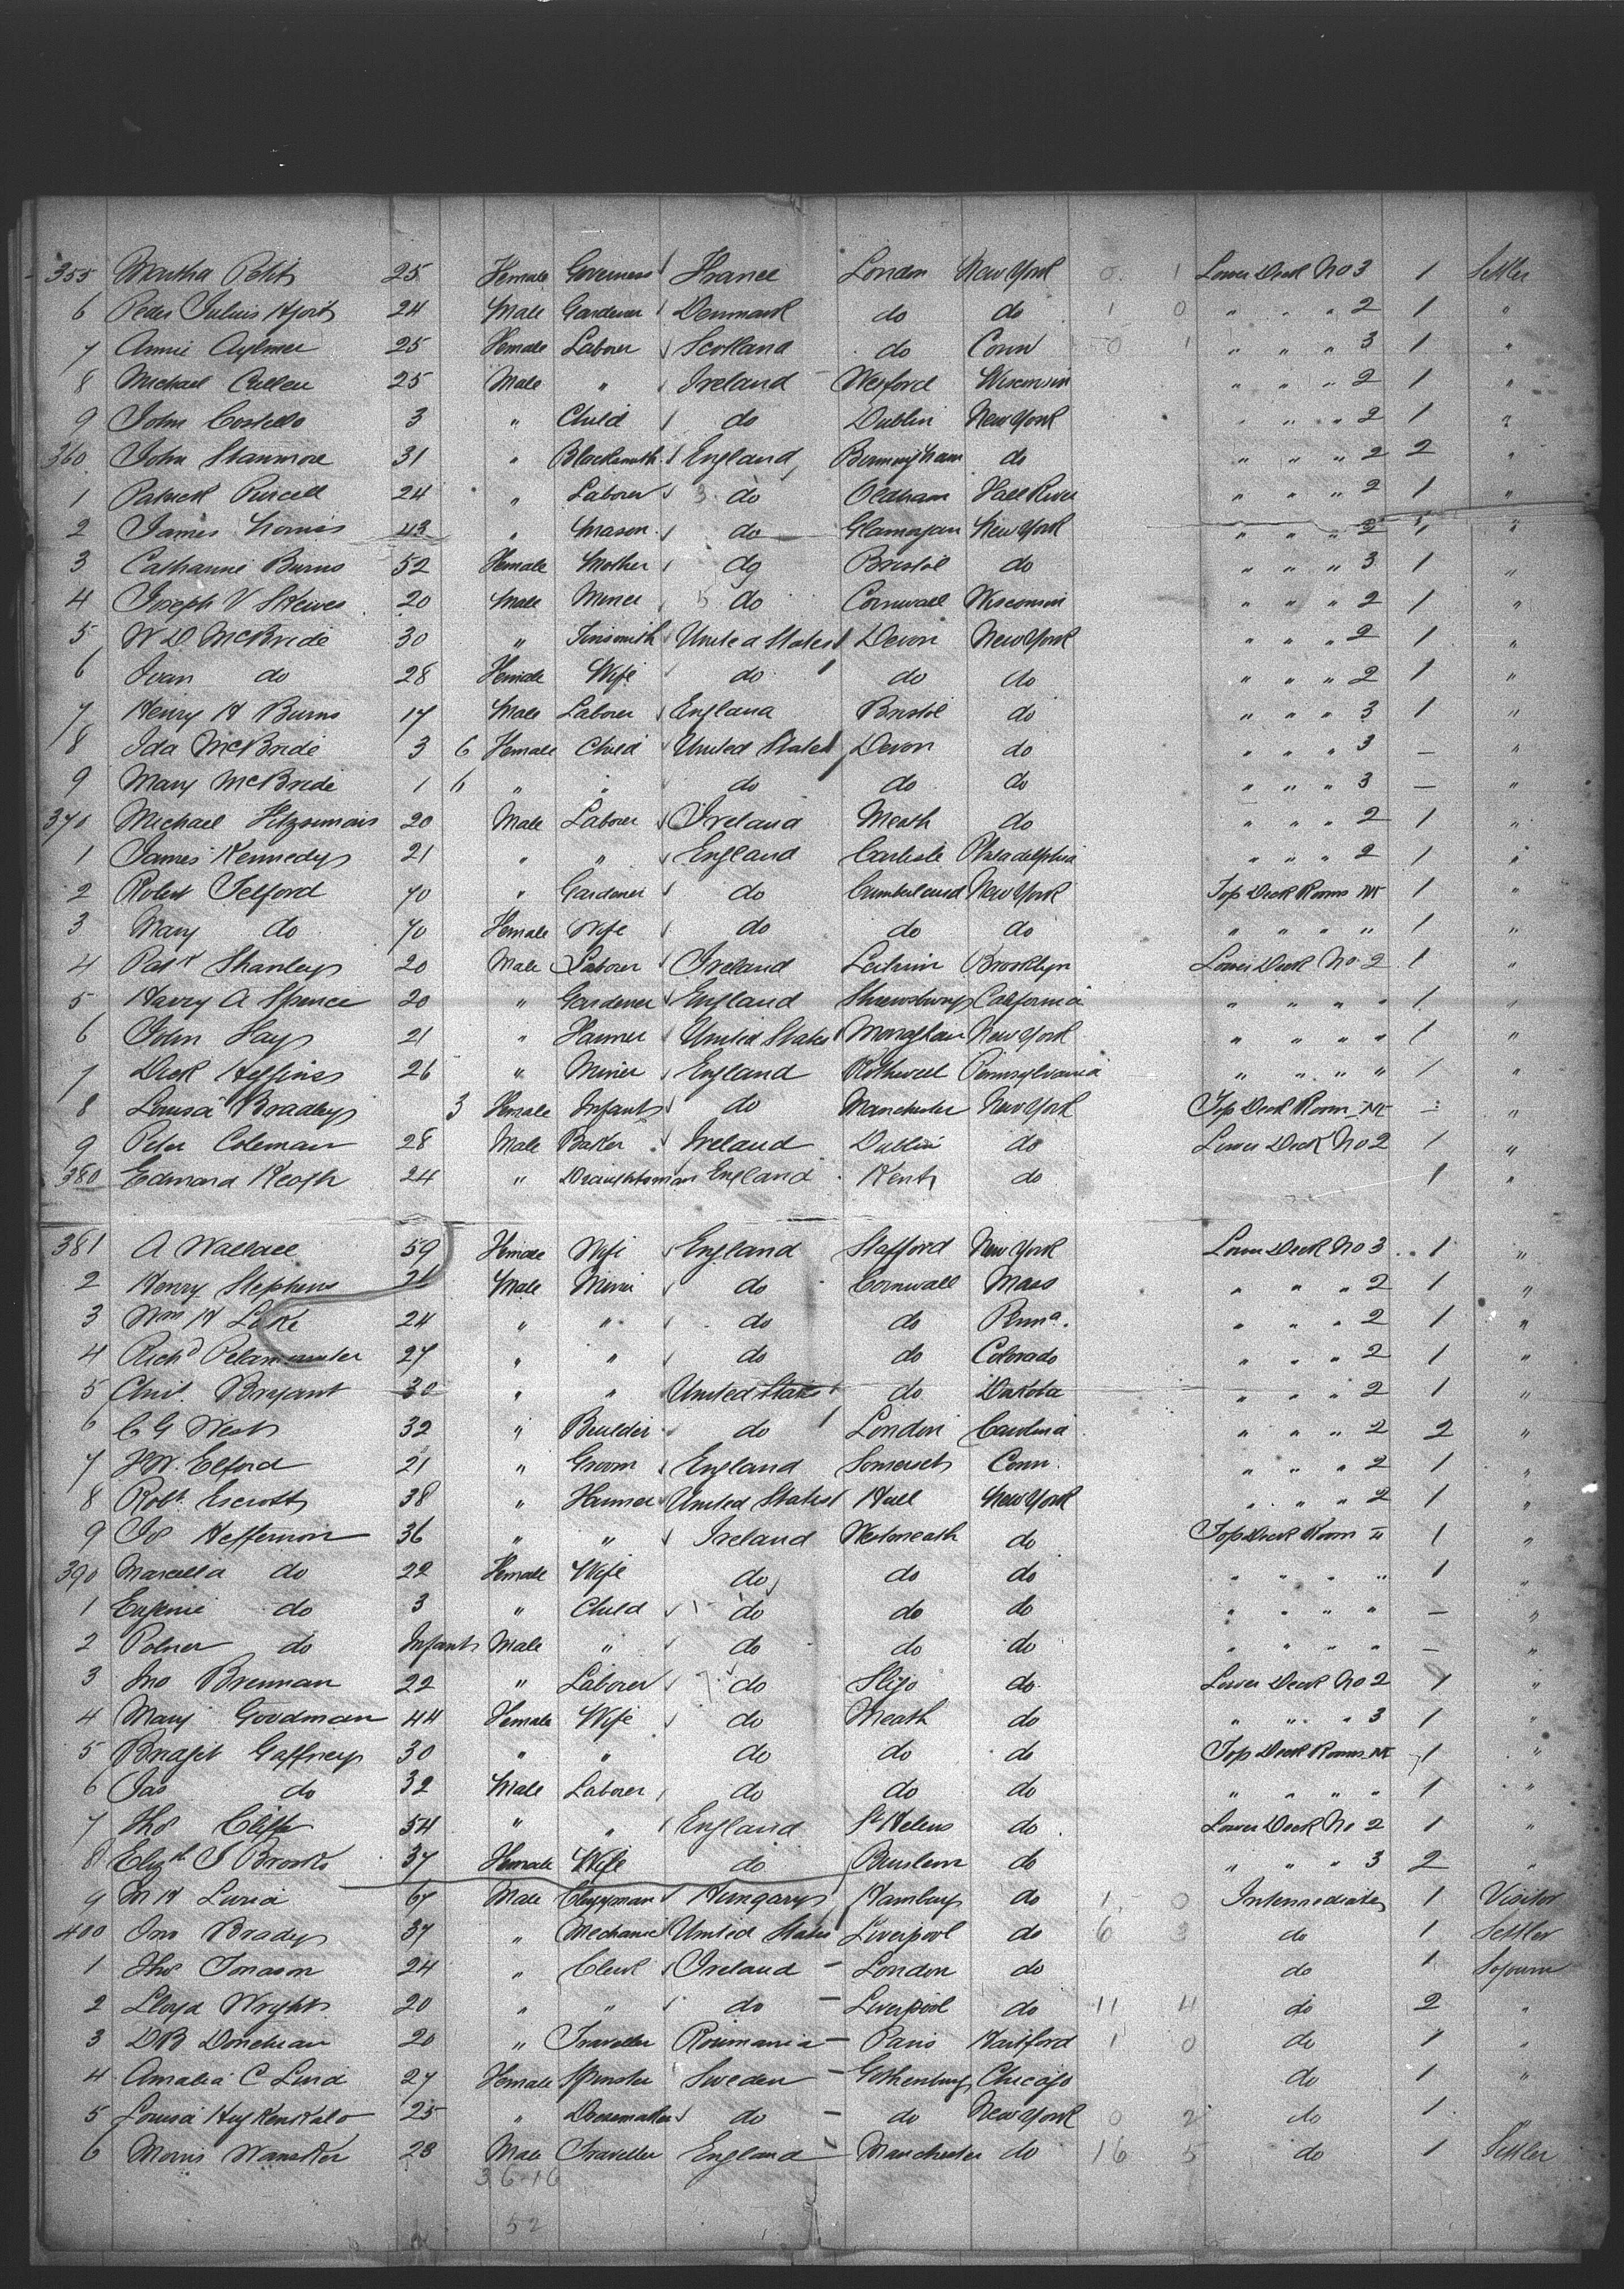 355 Martha Petit 25 Female Governess France London New York 0 1 Lower Deck No 3 1 Settler
6 Peder Julius Hjort 24 Male Gardener Denmark do do 1 0 " " " 2 1 "
7 Annie Aylmer 25 Female Laborer Scotland do Conn 0 1 " " " 3 1 "
8 Michael Cullen 25 Male " Ireland Wexford Wisconsin " " " 2 1 "
9 John Costello 3 " Child do Dublin New York " " " 2 1 "
360 John Stanmore 31 " Blacksmith England Birmingham do " " " 2 2 "
1 Patrick Purcell 24 " Laborer 3 do Oldham Fall River " " " 2 1 "
2 James Norris 43 " Mason do Glamorgan New York " " " 2 1 "
3 Catharine Burns 52 Female Mother do Bristol do " " " 3 1 "
4 Joseph V Skewes 20 Male Miner 5 do Cornwall Wisconsin " " " 2 1 "
5 W D McBride 30 " Tinsmith United States Devon New York " " " 2 1 "
6 Ivan do 28 Female Wife do do do " " " 2 1 "
7 Henry H Burns 17 Male Laborer England Bristol do " " " 3 1 "
8 Ida McBride 3 6 Female Child United States Devon do " " " 3 — "
9 Mary McBride 1 6 " " do do do " " " 3 — "
370 Michael Fitzsimons 20 Male Laborer Ireland Meath do " " " 2 1 "
1 James Kennedy 21 " " England Carlisle Philadelphia " " " 2 1 "
2 Robert Telford 70 " Gardener do Cumberland New York Top Deck Rooms 1 "
3 Mary do 70 Female Wife do do do " " " " 1 "
4 Patk Shanley 20 Male Laborer Ireland Leitrim Brooklyn Lower Deck No 2 1 "
5 Harry A Spence 20 " Gardener England Shrewsbury California " " " " 1 "
6 John Hays 21 " Farmer United States Monaghan New York " " " " 1 "
7 Dick 26 " Miner England Rothwell Pennsylvania " " " " 1 "
8 Louisa Bradley 3 Female Infant do Manchester New York Top Deck Room — "
9 Peter Coleman 28 Male Baker Ireland Dublin do Lower Deck No 2 1 "
380 Edmond Keogh 24 " Draughtsman England Kent do 1 "
381 A Wallace 59 Female Wife England Stafford New York Lower Deck No 3 1 "
2 Henry Stephens 21 Male Miner do Cornwall Mass " " " 2 1 "
3 Wm H Loke 24 " " do do Penna. " " " 2 1 "
4 Richd 27 " " do do Colorado " " " 2 1 "
5 Bryant 30 " " United States do Dakota " " " 2 1 "
6 C G West 32 " Builder do London Carolina " " " 2 2 "
7 Elford 21 " Groom England Somerset Conn. " " " 2 1 "
8 Robt. Escrott 38 " Farmer United States Hull New York " " " 2 1 "
9 Jos Heffernon 36 " " Ireland Westmeath do Top Deck Room 1 "
390 Marcella do 22 Female Wife do do do " " " " 1 "
1 Eugenie do 3 " Child do do do " " " " — "
2 do Infant Male " do do do " " " " — "
3 Jno Brennan 22 " Laborer do Sligo do Lower Deck No 2 1 "
4 Mary Goodman 44 Female Wife do Meath do " " " 3 1 "
5 Bridget Gaffney 30 " " do do do Top Deck Rooms 1 "
6 Jas do 32 Male Laborer do do do " " " " 1 "
7 Thos 54 " " England St Helens do Lower Deck No 2 1 "
8 Elizth S Brooks 37 Female Wife do Burslem do " " " 3 2 "
9 M H Luria 67 Male Clergyman Hungary Hamburg do 1 0 Intermediate 1 Visitor
400 Jno Brady 37 " Mechanic United States Liverpool do 6 3 do 1 Settler
1 Thos Jonason 24 " Clerk Ireland London do do 1 Sojourn
2 Lloyd Wright 20 " " do Liverpool do 11 4 do 2 "
3 D B 20 " Traveller Roumania Paris Hartford 1 0 do 1 "
4 Amalia C Lind 27 Female Spinster Sweden Gothenburg Chicago do 1 "
5 Louisa 25 " Dressmaker do do New York 0 2 do 1
6 Morris Wansker 28 Male Traveller England Manchester do 16 5 do 1 Settler
36 16
52